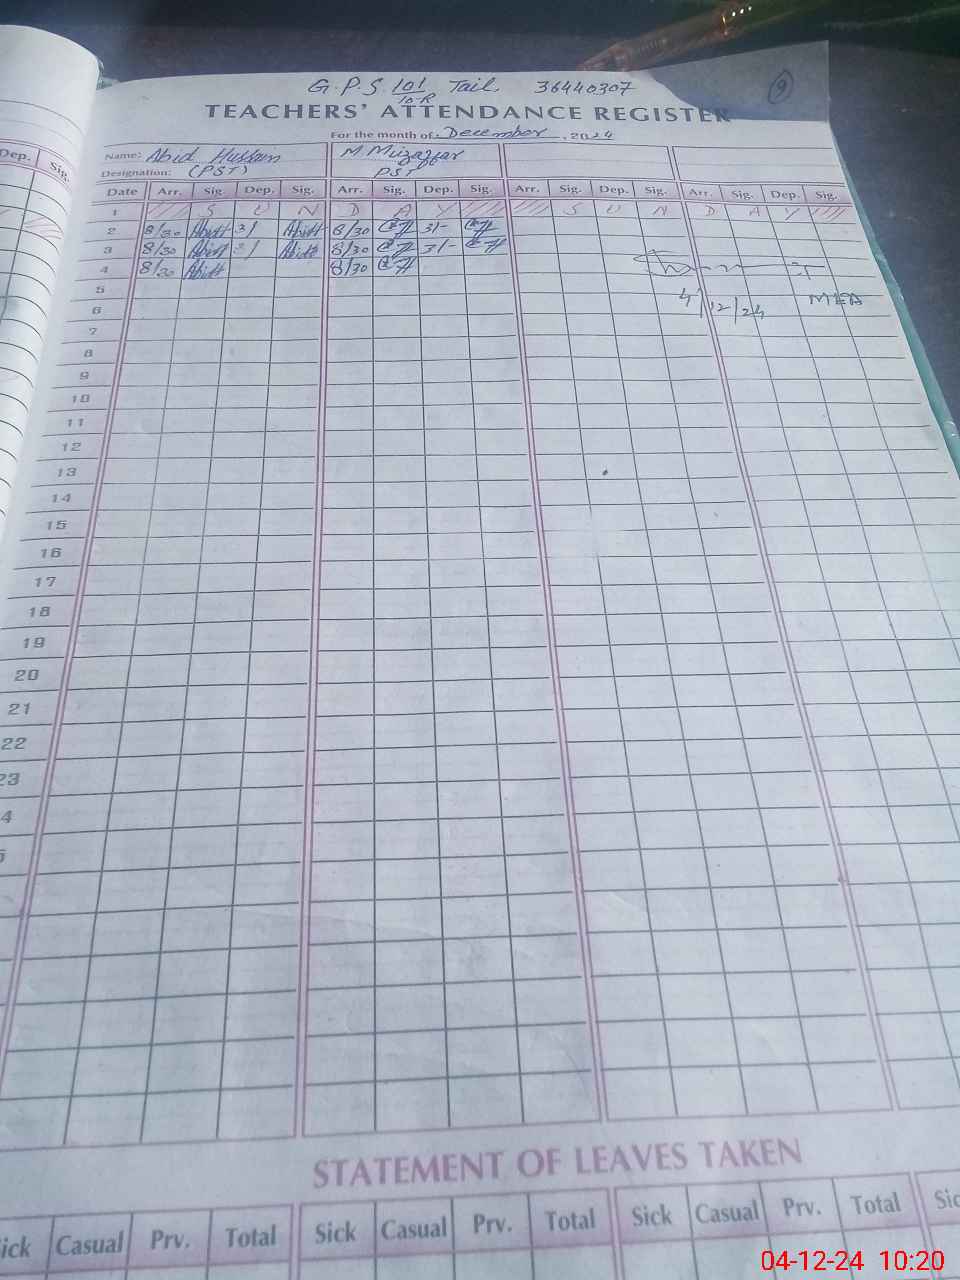 G.P.S 101/10-R Tail. 36440307 9
TEACHERS' ATTENDANCE REGISTER
For the month of December, 2024
Name: Abid Hussain M Muzaffar
Designation: (PST) PST
Dep. Sig.
Date Arr. Sig. Dep. Sig. Arr. Sig. Dep. Sig. Arr. Sig. Dep. Sig. Arr. Sig. Dep. Sig.
1 S U N D A Y S U N D A Y
2 8/30 Abid 3/ Abid 8/30 3/-
3 8/30 Abid 3/ Abid 8/30 3/-
4 8/30 Abid 8/30
5
4/12/24 MEA
6
7
8
9
10
11
12
13
14
15
16
17
18
19
20
21
22
23
4
5
STATEMENT OF LEAVES TAKEN
ick Casual Prv. Total Sick Casual Prv. Total Sick Casual Prv. Total Sic
04-12-24 10:20